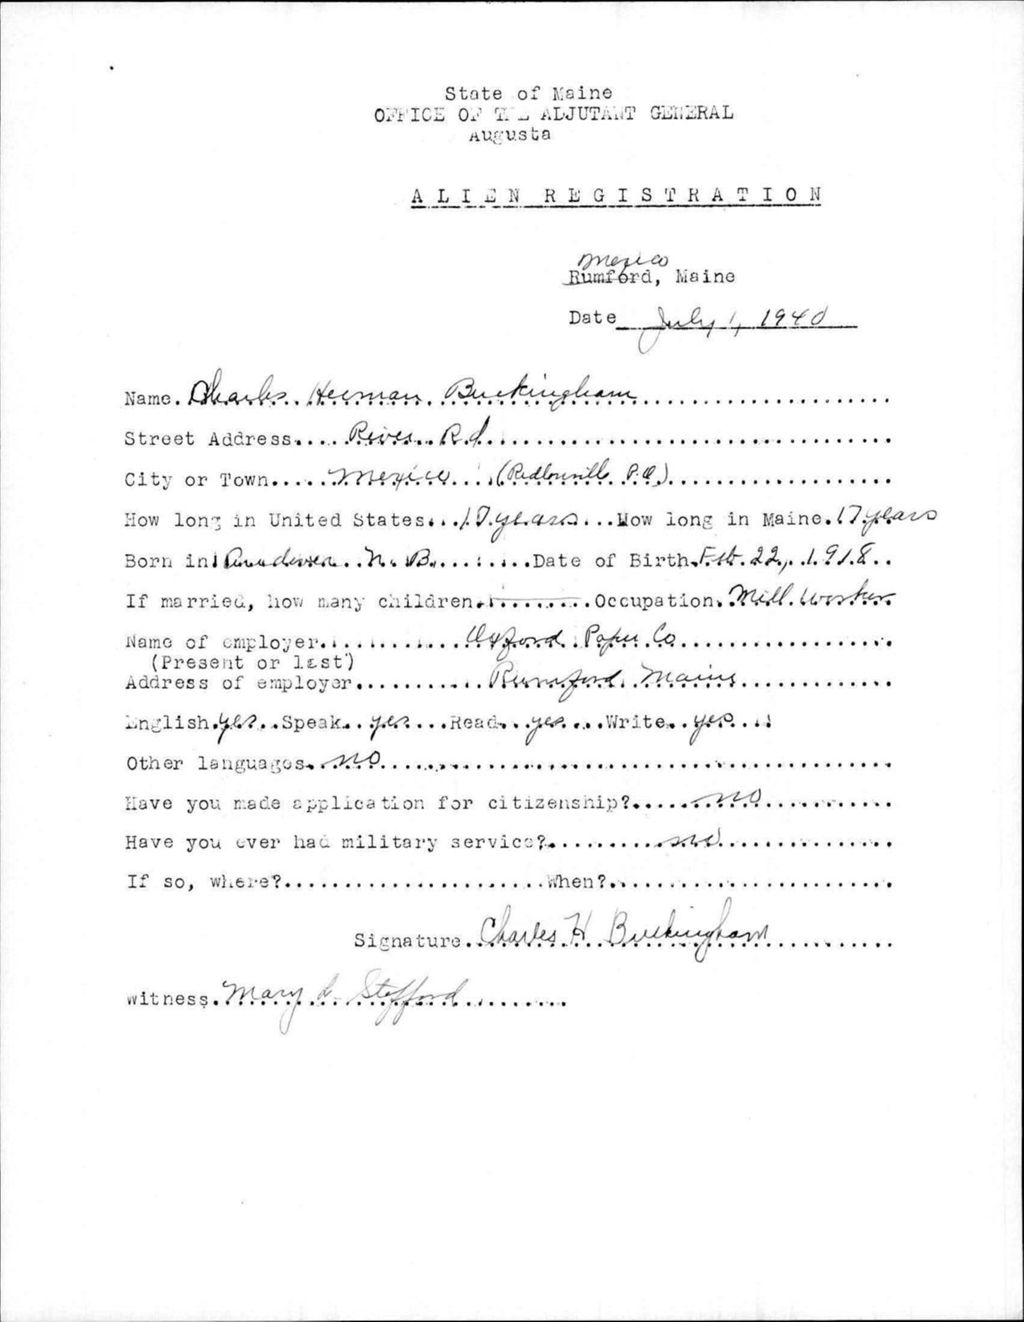 State of Maine
OFFICE OF THE ADJUTANT GENERAL
Augusta
ALIEN REGISTRATION
Mexico
Rumford, Maine
Date July 1, 1940
Name. Charles Herman Buckingham
Street Address..... River Rd
City or Town..... Mexico (Ridlonville P.O.)
How long in United States... 17 years ...How long in Maine. 17 years
Born in Andover N. B. ......Date of Birth. Feb. 22, 1918
If married, how many children.........Occupation. Mill Worker
Name of employer........... Oxford Paper Co
(Present or last)
Address of employer........... Rumford Maine
English. yes ..Speak.. yes ...Read... yes ...Write.. yes
Other languages.. no
Have you made application for citizenship?...... no
Have you ever had military service?.......... no
If so, where?.......................When?.......................
Signature. Charles H Buckingham
Witness. Mary L. Stafford